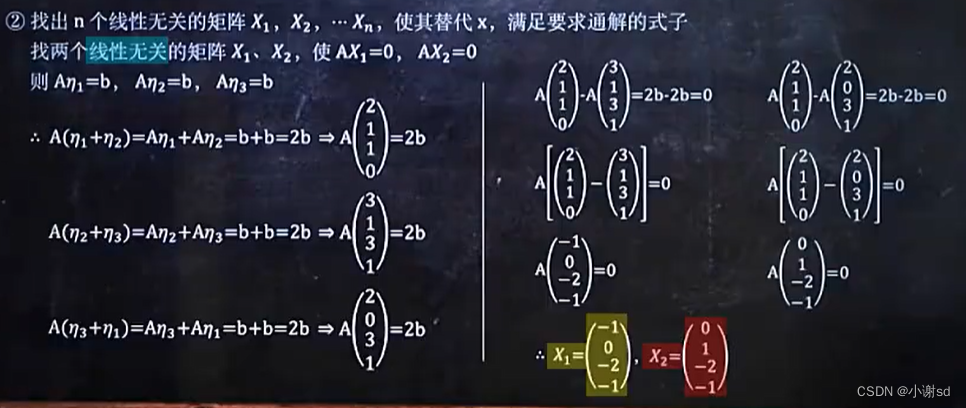 ② 找出 n 个线性无关的矩阵 X₁，X₂，⋯Xₙ，使其替代 x，满足要求通解的式子
找两个线性无关的矩阵 X₁、X₂，使 AX₁=0， AX₂=0
则 Aη₁=b， Aη₂=b， Aη₃=b
∴ A(η₁+η₂)=Aη₁+Aη₂=b+b=2b ⇒ A(2 1 1 0)=2b
A(η₂+η₃)=Aη₂+Aη₃=b+b=2b ⇒ A(3 1 3 1)=2b
A(η₃+η₁)=Aη₃+Aη₁=b+b=2b ⇒ A(2 0 3 1)=2b
A(2 1 1 0)-A(3 1 3 1)=2b-2b=0
A[(2 1 1 0)−(3 1 3 1)]=0
A(−1 0 −2 −1)=0
A(2 1 1 0)-A(2 0 3 1)=2b-2b=0
A[(2 1 1 0)−(2 0 3 1)]=0
A(0 1 −2 −1)=0
∴ X₁=(−1 0 −2 −1)，X₂=(0 1 −2 −1)
CSDN @小谢sd